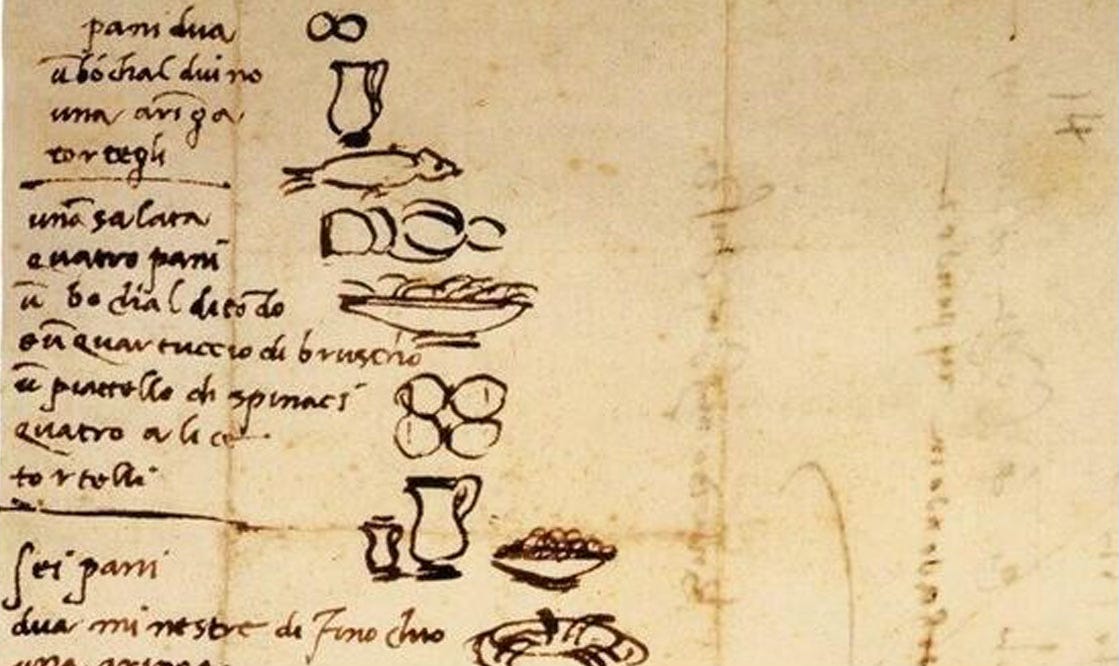 pani dua
ū bochal duino
una aringa
tortegli
una salata
quatro pani
ū bochal di tōdo
e ū quartuccio di bruscho
ū piattello di spinaci
quatro alice
tortelli
sei pani
dua minestre di finochio
una aringa